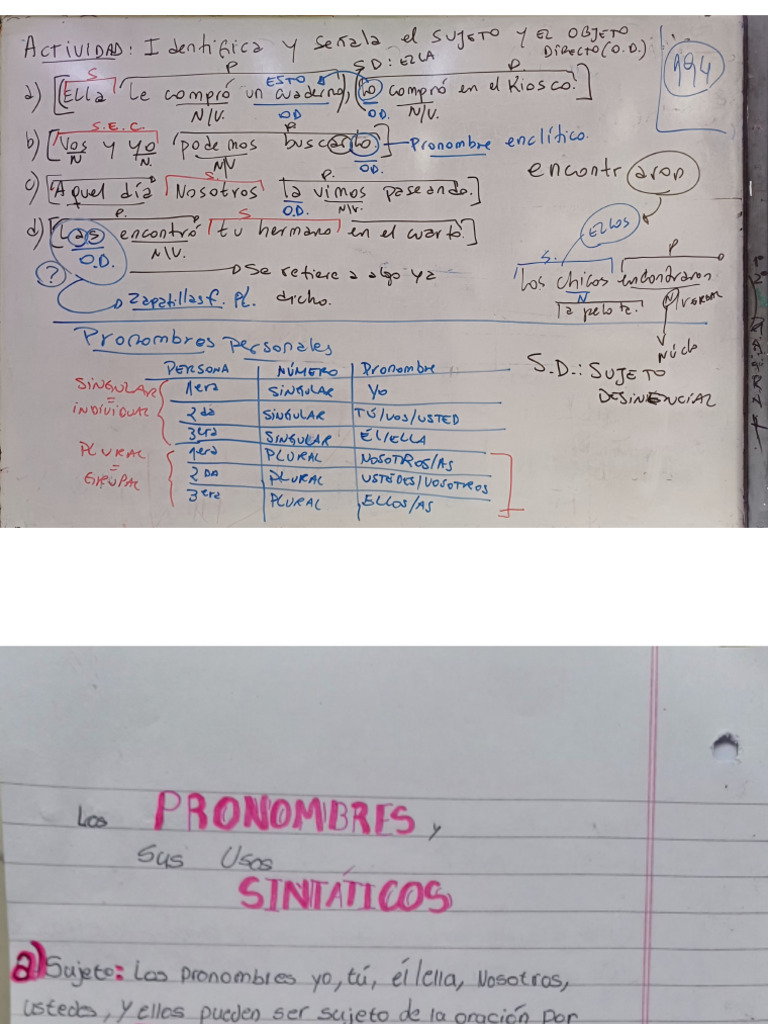 ACTIVIDAD: Identifica y señala el SUJETO y EL OBJETO
DIRECTO (O.D.):
994
S P S D: ELLA P
ESTO
a) [Ella le compró un cuaderno, lo compró en el Kiosco.]
N/V. OD O.D. N/V.
S.E.C. P
b) [Vos y yo podemos buscarlo.] Pronombre enclítico.
N N. N/V O.D.
encontraron
S. P.
c) [Aquel día Nosotros la vimos paseando.]
O.D. N/V.
ELLOS
P. S P
d) [Las encontró tu hermano en el cuarto.]
O.D. N/V.
S. P
Los chicos encontraron
N N/VERBAL
la pelota.
Núclo
? Se refiere a algo ya
Zapatillas f. PL. dicho.
S.D.: SUJETO
DESINENCIAL
Pronombres personales
PERSONA NÚMERO Pronombre
1era SINGULAR Yo
2da SINGULAR TÚ/VOS/USTED
3era SINGULAR ÉL/ELLA
1era PLURAL NOSOTROS/AS
2DA PLURAL USTEDES/VOSOTROS
3era PLURAL ELLOS/AS
SINGULAR
=
INDIVIDUAL
PLURAL
=
GRUPAL
Los PRONOMBRES y
Sus Usos
SINTÁTICOS
a) Sujeto: Los pronombres yo, tú, él/ella, Nosotros,
ustedes, y ellos pueden ser sujeto de la oración por